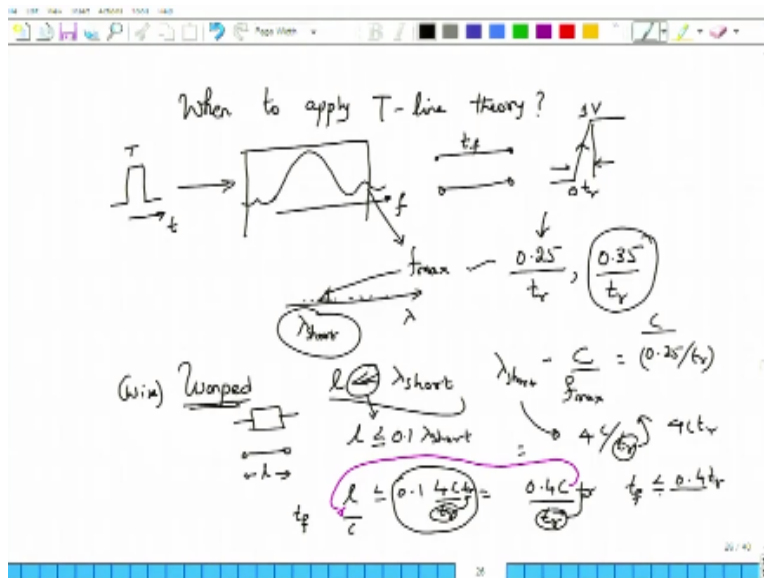 Page Width
When to apply T-line theory?
T
t
f
t_f
1V
0 t_r
f_max
0.25/t_r , 0.35/t_r
λ_short
λ
(wire) Lumped
l ≪ λ_short
l ≤ 0.1 λ_short
λ_short - C/f_max = C/(0.25/t_r)
= 4C/t_r 4Ct_r
t_f l/C ≤ 0.1 4Ct_r/t_r = 0.4C/t_r t_r t_f ≤ 0.4t_r
26